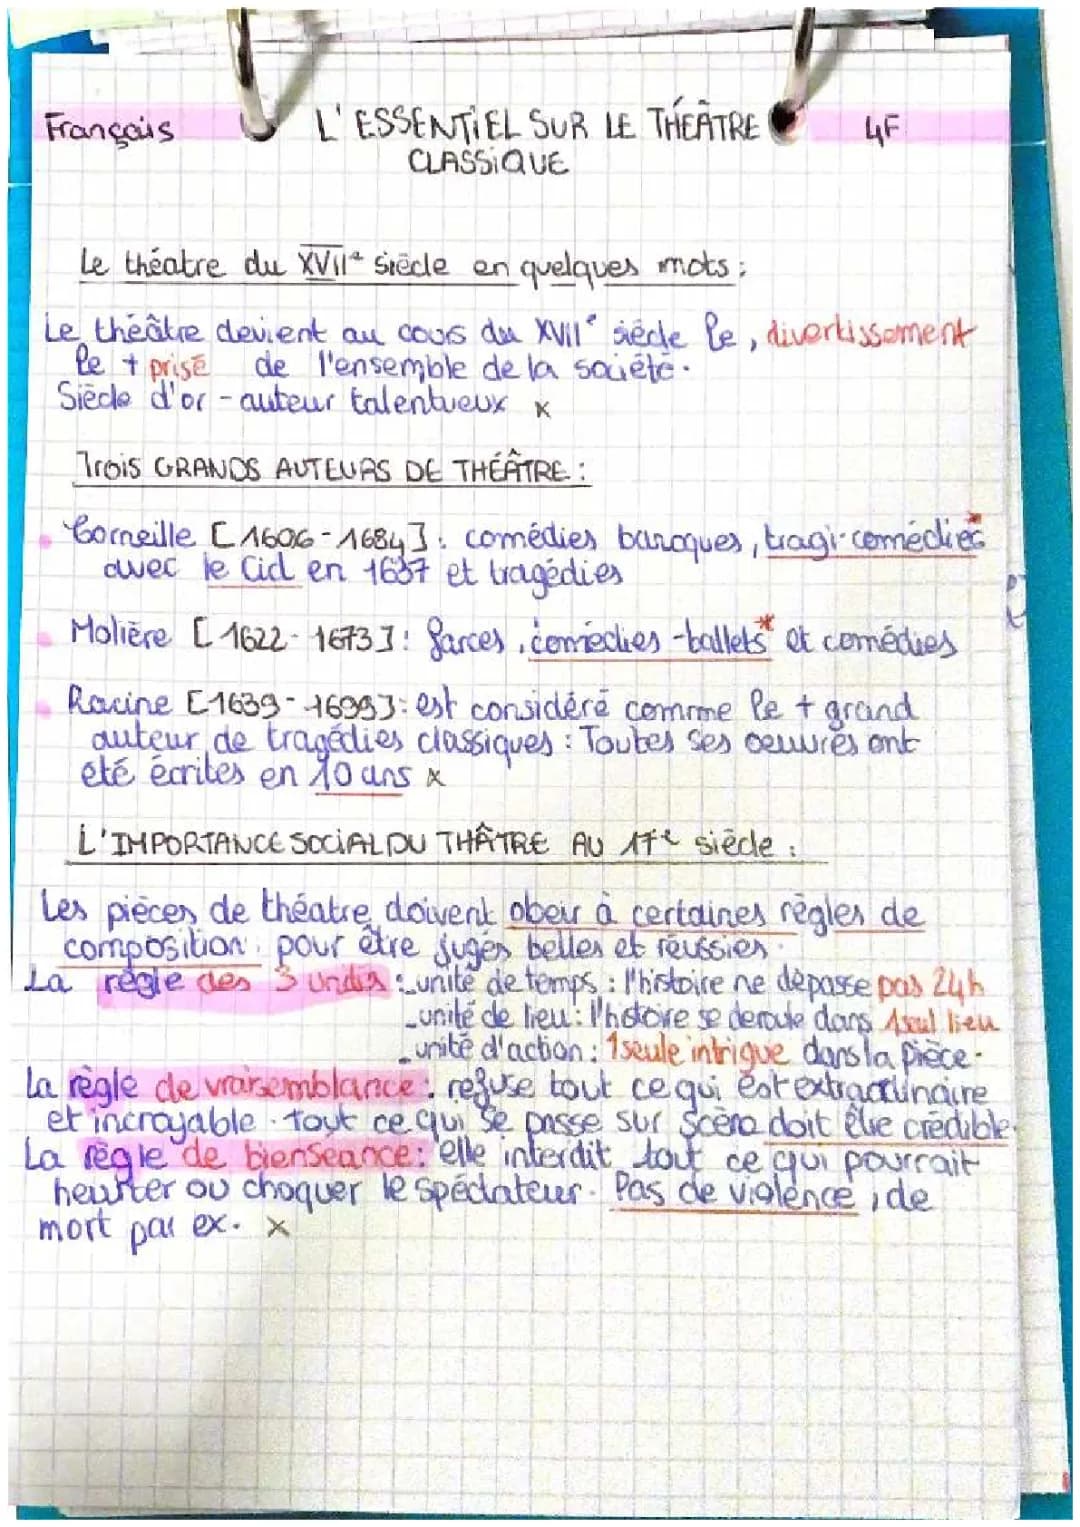 Français L'ESSENTIEL SUR LE THÉÂTRE 4F
CLASSIQUE
Le théatre du XVIIe siècle en quelques mots :
Le théâtre devient au cours du XVIIe siècle le, divertissement
le + prisé de l'ensemble de la société.
Siècle d'or - auteur talentueux x
Trois GRANDS AUTEURS DE THÉÂTRE :
Corneille [1606-1684] : comédies baroques, tragi-comédies*
avec le Cid en 1637 et tragédies
Molière [1622-1673] : farces, comédies-ballets* et comédies
Racine [1639-1699] : est considéré comme le + grand
auteur de tragédies classiques : Toutes ses oeuvres ont
été écrites en 10 ans x
L'IMPORTANCE SOCIAL DU THÂTRE AU 17e siècle :
Les pièces de théatre doivent obeir à certaines règles de
composition pour être jugés belles et réussies.
La règle des 3 unitis : _unité de temps : l'histoire ne dépasse pas 24h
_unité de lieu : l'histoire se deroule dans 1 seul lieu
_unité d'action : 1 seule intrigue dans la pièce.
La règle de vraisemblance : refuse tout ce qui est extraordinaire
et incroyable. Tout ce qui se passe sur scène doit être crédible.
La règle de bienseance : elle interdit tout ce qui pourrait
heurter ou choquer le spéctateur. Pas de violence, de
mort par ex. x